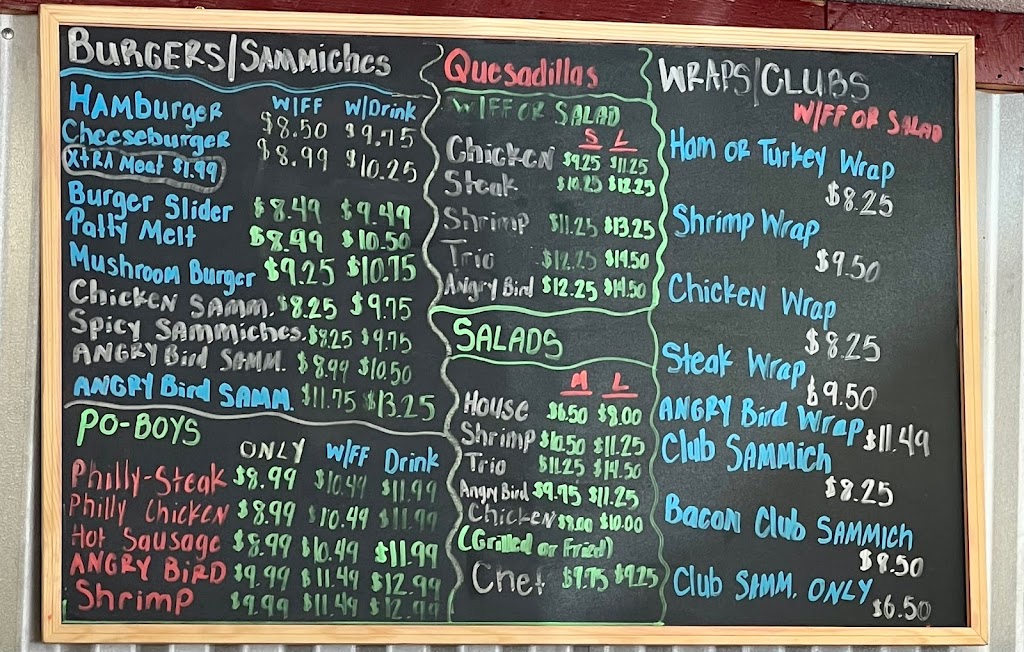 BURGERS/SAMMICHES
W/FF W/Drink
HAMburger $8.50 $9.75
Cheeseburger $8.99 $10.25
XtRA Meat $1.99
Burger Slider $8.49 $9.49
Patty Melt $8.99 $10.50
Mushroom Burger $9.25 $10.75
Chicken SAMM. $8.25 $9.75
Spicy SAMMiches. $8.25 $9.75
ANGRY Bird SAMM. $8.99 $10.50
ANGRY Bird SAMM. $11.75 $13.25
PO-BOYS
ONLY W/FF Drink
Philly-Steak $8.99 $10.49 $11.99
Philly Chicken $8.99 $10.49 $11.99
Hot Sausage $8.99 $10.49 $11.99
ANGRY BiRD $9.99 $11.49 $12.99
Shrimp $9.99 $11.49 $12.99
Quesadillas
W/FF OR SALAD
S L
Chicken $9.25 $11.25
Steak $10.25 $12.25
Shrimp $11.25 $13.25
Trio $12.25 $14.50
Angry Bird $12.25 $14.50
SALADS
M L
House $6.50 $8.00
Shrimp $10.50 $11.25
Trio $11.25 $14.50
Angry Bird $9.75 $11.25
Chicken $8.00 $10.00
(Grilled or Fried)
Chef $7.75 $9.25
WRAPS/CLUBS
W/FF OR SALAD
Ham or Turkey Wrap
$8.25
Shrimp Wrap
$9.50
Chicken Wrap
$8.25
Steak Wrap
$9.50
ANGRY Bird Wrap $11.49
Club SAMMich
$8.25
Bacon Club SAMMich
$8.50
Club SAMM. ONLY
$6.50